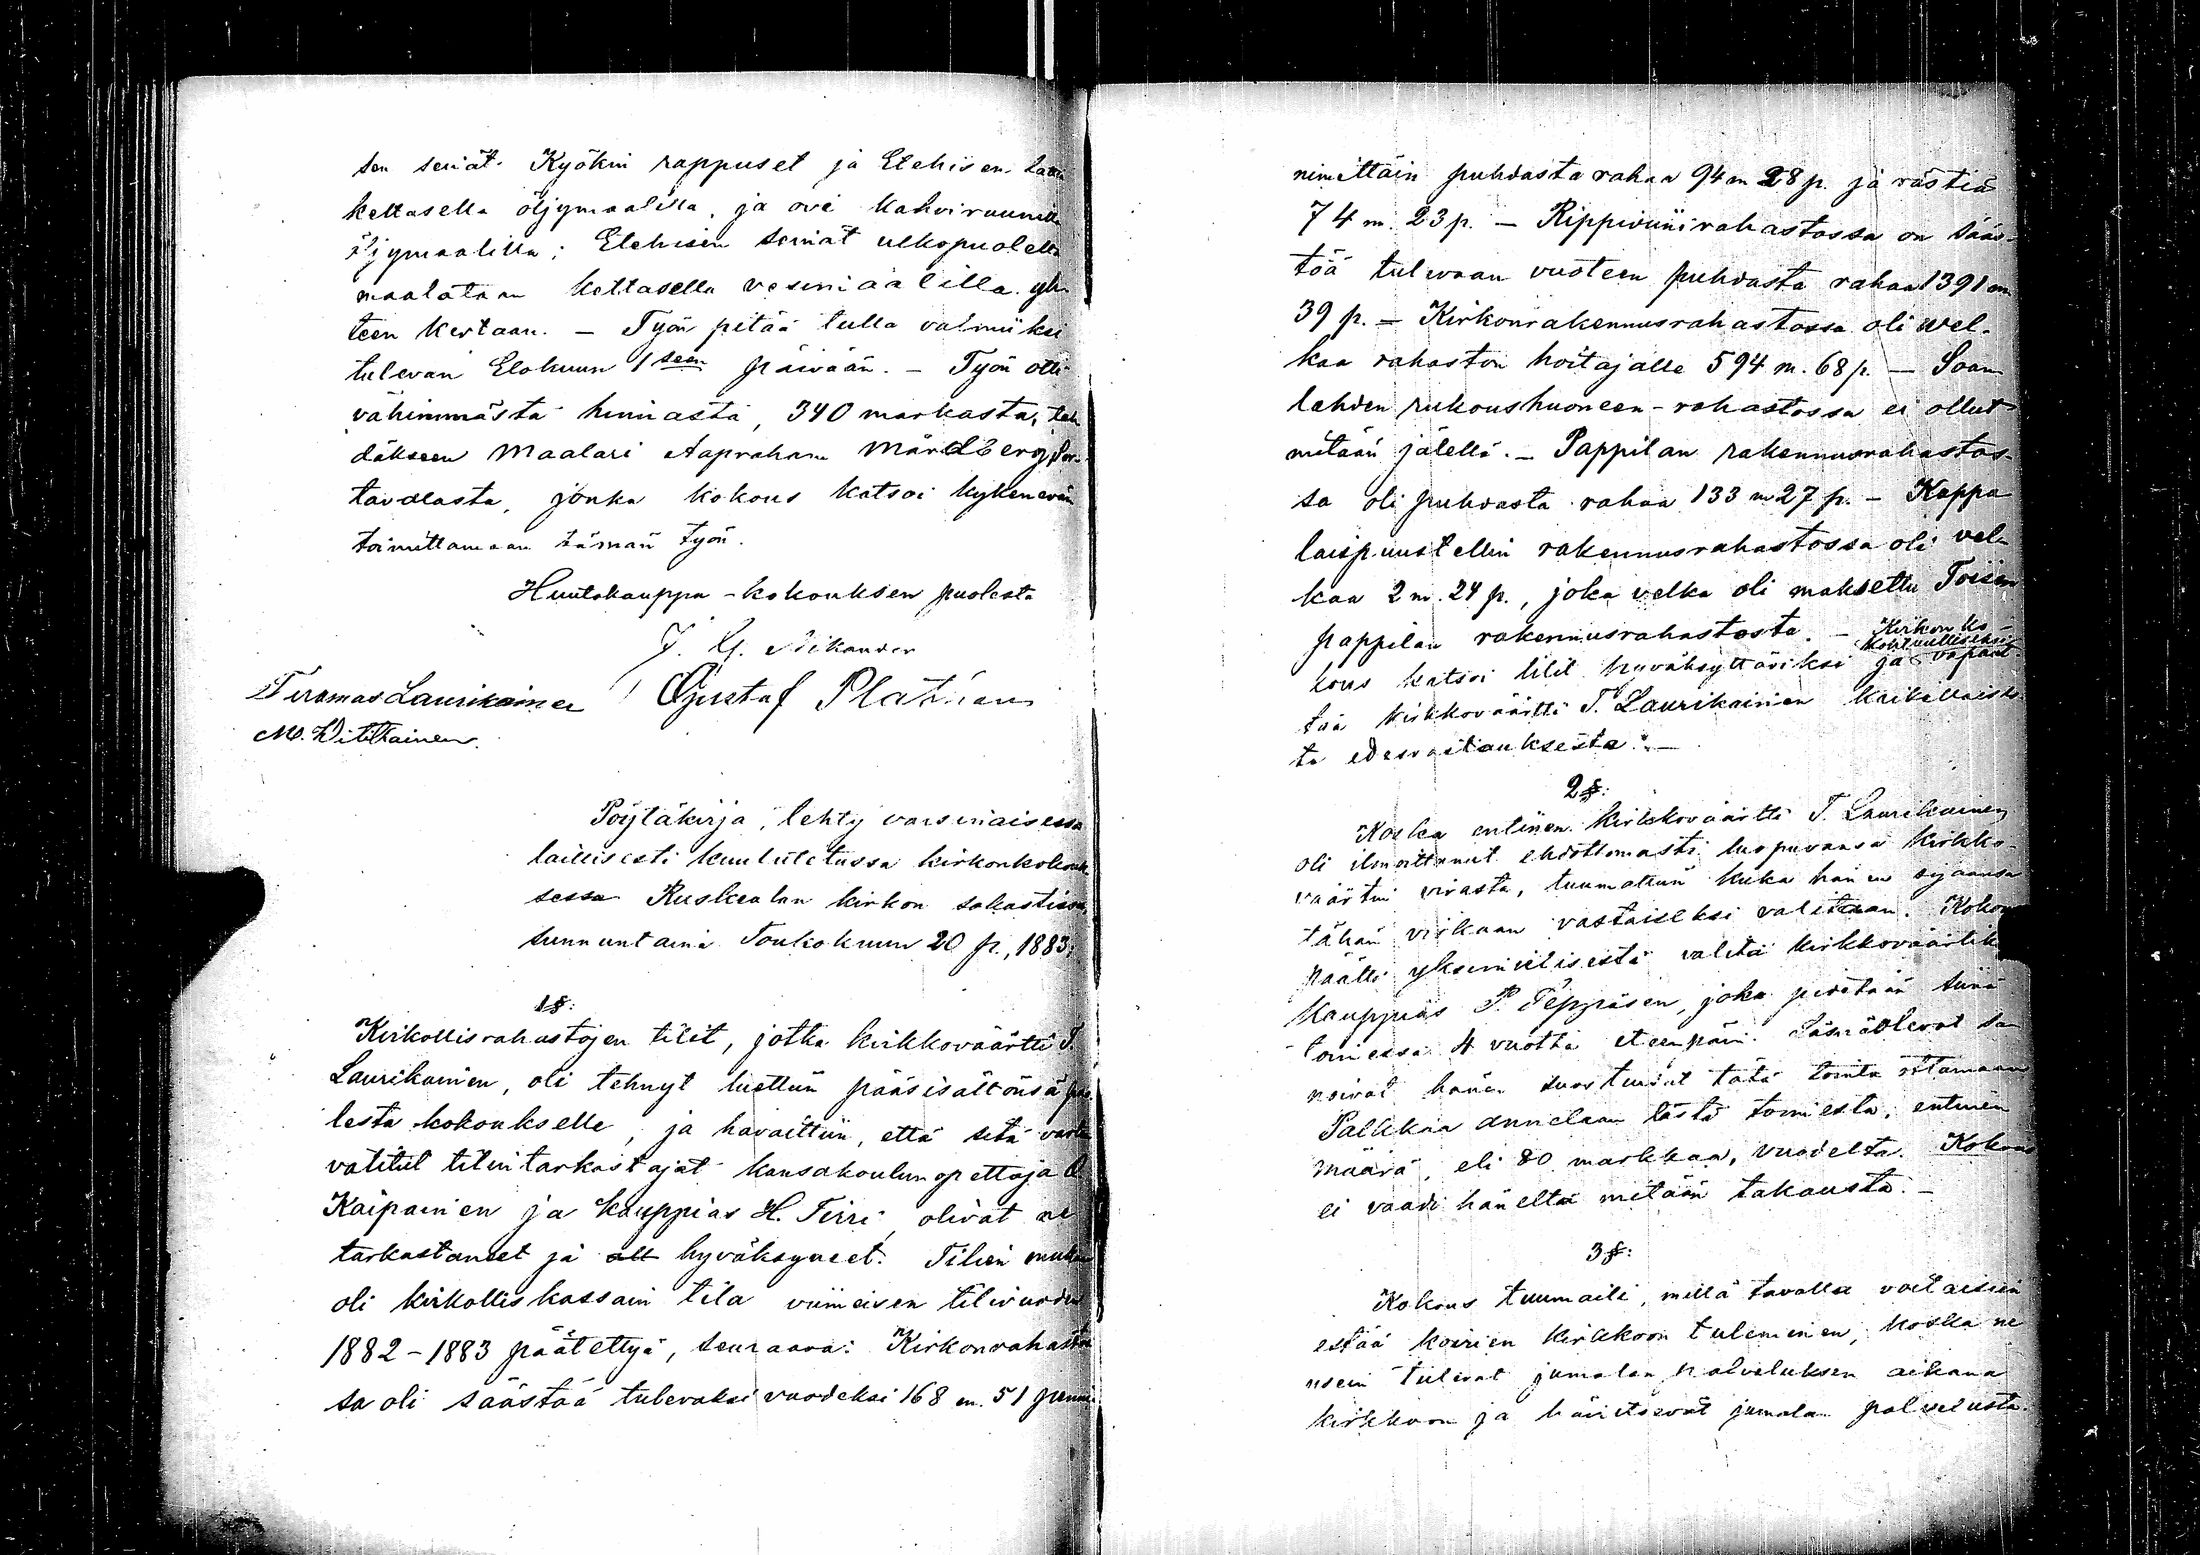 sen seinät. Kyökin rappuset ja Etehisen
keltasella öljymaalilla, ja ovi kahviruunilla
öljymaalilla; Etehisen seinät ulkopuolelta
maalataan keltasella vesimaalilla yh-
teen kertaan. — Työn pitää tulla valmiiksi
tulevan Elokuun 1seen päivään. — Työn otti
vähimmästä hinnasta, 340 markasta, teh
däkseen Maalari Aapraham Mårdberg Sor-
tavalasta, jonka kokous katsoi kykenevän
toimittamaan tämän työn.
Huutokauppa-kokouksen puolesta
J. G. Nikander
Tuomas Laurikainen Gustaf Plathan
M. Wititkainen.
Pöytäkirja, tehty varsinaisessa
laillisesti kuulutetussa kirkonkokouk
sessa Ruskealan kirkon sakastissa,
sunnuntaina Toukokuun 20 p., 1883;
1 §:
Kirkollisrahastojen tilit, jotka kirkkoväärtti T.
Laurikainen, oli tehnyt luettiin pääsisältönsä puo
lesta kokoukselle, ja havaittiin, että sitä varten
valitut tilintarkastajat kansakoulunopettaja
Kaipainen ja kauppias H. Tirri, olivat ne
tarkastaneet ja hyväksyneet. Tilien mukaan
oli kirkolliskassain tila viimeisen tilivuoden
1882-1883 päätettyä, seuraava: Kirkonrahastos
sa oli säästöä tulevaksi vuodeksi 168 m. 51 penniä
nimittäin puhdasta rahaa 94 m 28 p. ja rästiä
74 m. 23 p. — Rippiviinirahastossa on sääs-
töä tulevaan vuoteen puhdasta rahaa 1391 m
39 p. — Kirkonrakennusrahastossa oli wel-
kaa rahaston hoitajalle 594 m. 68 p. — Soan
lahden rukoushuoneen-rahastossa ei ollut
mitään jälellä. — Pappilan rakennusrahastos-
sa oli puhdasta rahaa 133 m 27 p. — Kappa
laispuustellin rakennusrahastossa oli vel-
kaa 2 m. 24 p., joka velka oli maksettu Toisen
pappilan rakennusrahastosta. — Kirkonko
kous katsoi tilit hyväksyttäviksi ja vapaut-
taa kirkkoväärtti T. Laurikainen kaikellaises-
ta edesvastauksesta. —
2 §:
Koska entinen kirkkoväärtti T. Laurikainen
oli ilmoittanut ehdottomasti luopuvansa kirkko-
väärtin virasta, tuumattiin kuka hänen sijaansa
tähän virkaan vastaiseksi valitaan. Kokous
päätti yksimielisesti valita kirkkoväärtiksi
Kauppias P. Teppäsen, joka pidetään siinä
toimessa 4 vuotta eteenpäin. Läsnäolevat sa
noivat hänen suostuvat tätä tointa ottamaan
Palkkaa annetaan tästä toimesta, entinen
määrä, eli 80 markkaa, vuodelta. Kokous
ei vaadi häneltä mitään takausta. —
3 §:
Kokous tuumaili, millä tavalla voitaisiin
estää koirien kirkkoon tuleminen, koska ne
usein tulevat jumalan palveluksen aikana
kirkkoon ja häiritsevät jumalan palvelusta.